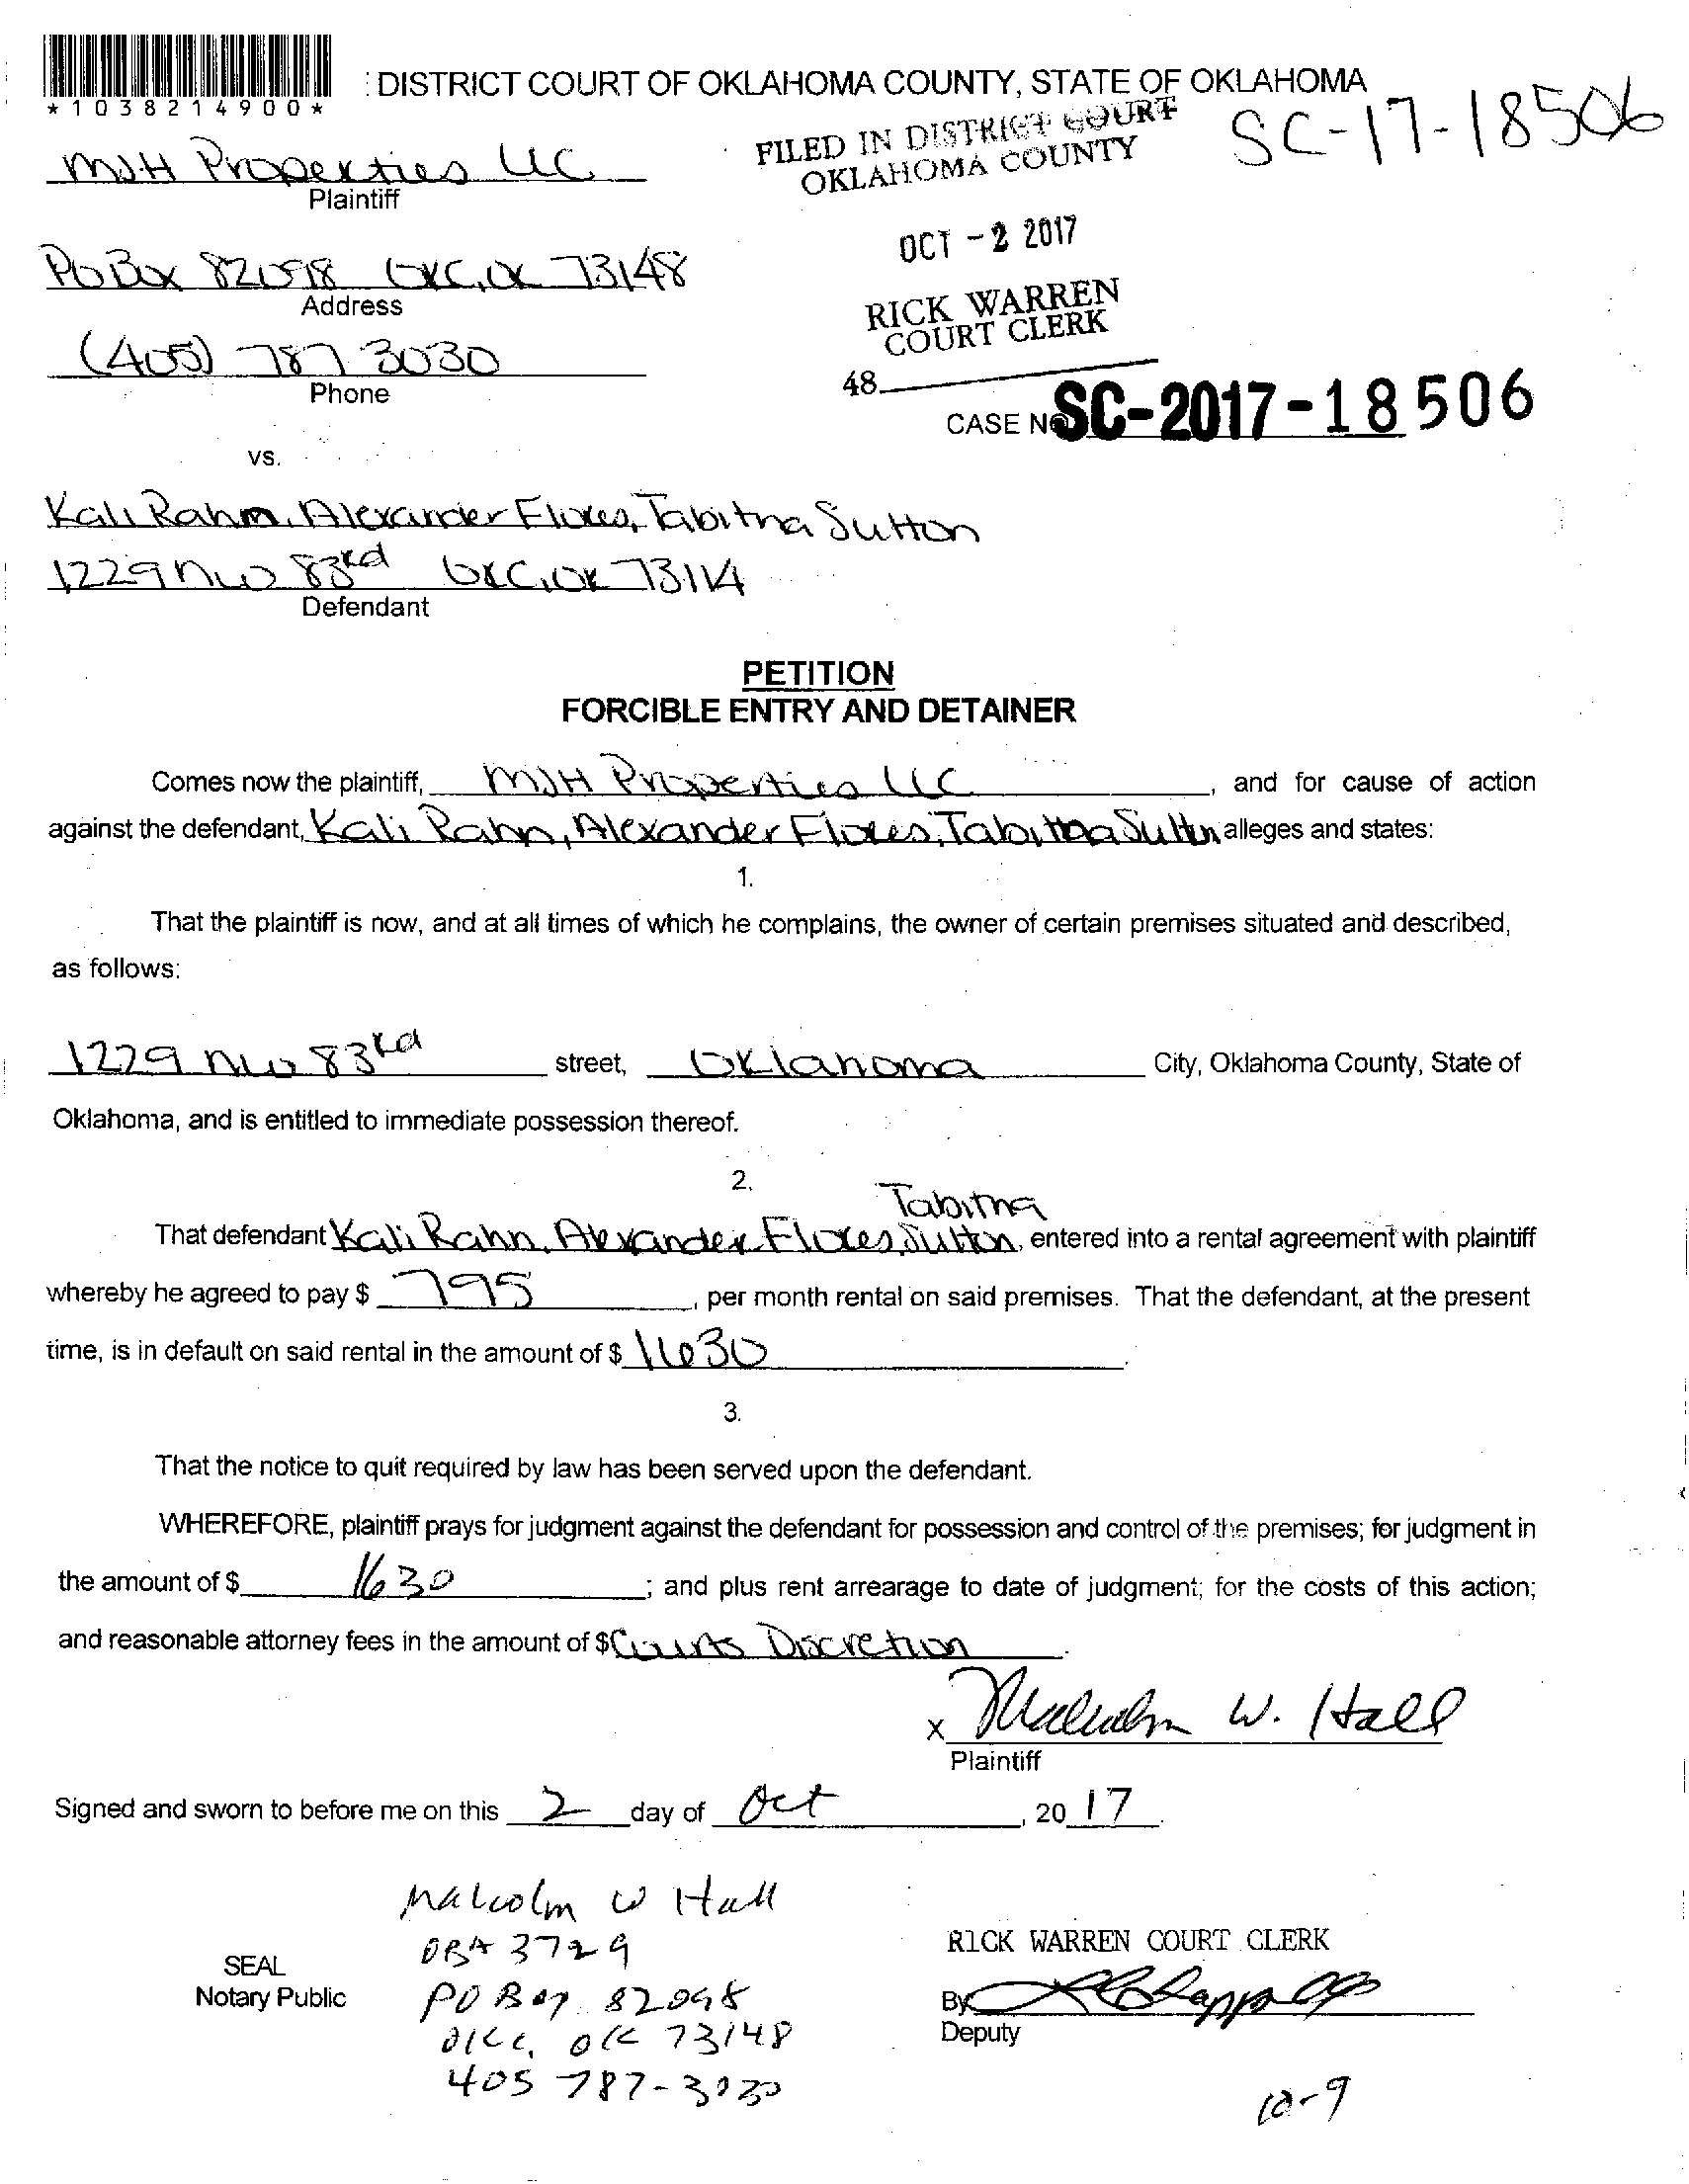 *1038214900*
: DISTRICT COURT OF OKLAHOMA COUNTY, STATE OF OKLAHOMA
SC-17-18506
FILED IN DISTRICT COURT
OKLAHOMA COUNTY
MJH Properties LLC
Plaintiff
OCT -2 2017
PO Box 82098 OKC, OK 73148
Address
RICK WARREN
COURT CLERK
(405) 787 3030
Phone
48
CASE NO SC-2017-18506
vs.
Kali Rahn, Alexander Flores, Tabitha Sutton
1229 NW 83rd OKC, OK 73114
Defendant
PETITION
FORCIBLE ENTRY AND DETAINER
Comes now the plaintiff, MJH Properties LLC, and for cause of action
against the defendant, Kali Rahn, Alexander Flores, Tabitha Sutton alleges and states:
1.
That the plaintiff is now, and at all times of which he complains, the owner of certain premises situated and described,
as follows:
1229 NW 83rd street, Oklahoma City, Oklahoma County, State of
Oklahoma, and is entitled to immediate possession thereof.
2.
Tabitha
That defendant Kali Rahn, Alexander Flores, Sutton, entered into a rental agreement with plaintiff
whereby he agreed to pay $ 795, per month rental on said premises. That the defendant, at the present
time, is in default on said rental in the amount of $ 1630.
3.
That the notice to quit required by law has been served upon the defendant.
WHEREFORE, plaintiff prays for judgment against the defendant for possession and control of the premises; for judgment in
the amount of $ 1630; and plus rent arrearage to date of judgment; for the costs of this action;
and reasonable attorney fees in the amount of $ Courts Discretion.
x Malcolm W. Hall
Plaintiff
Signed and sworn to before me on this 2 day of Oct, 20 17.
Malcolm W Hall
OBA 3729
RICK WARREN COURT CLERK
SEAL
Notary Public
PO Box 82098
By
OKC, OK 73148
Deputy
405 787-3030
10-9